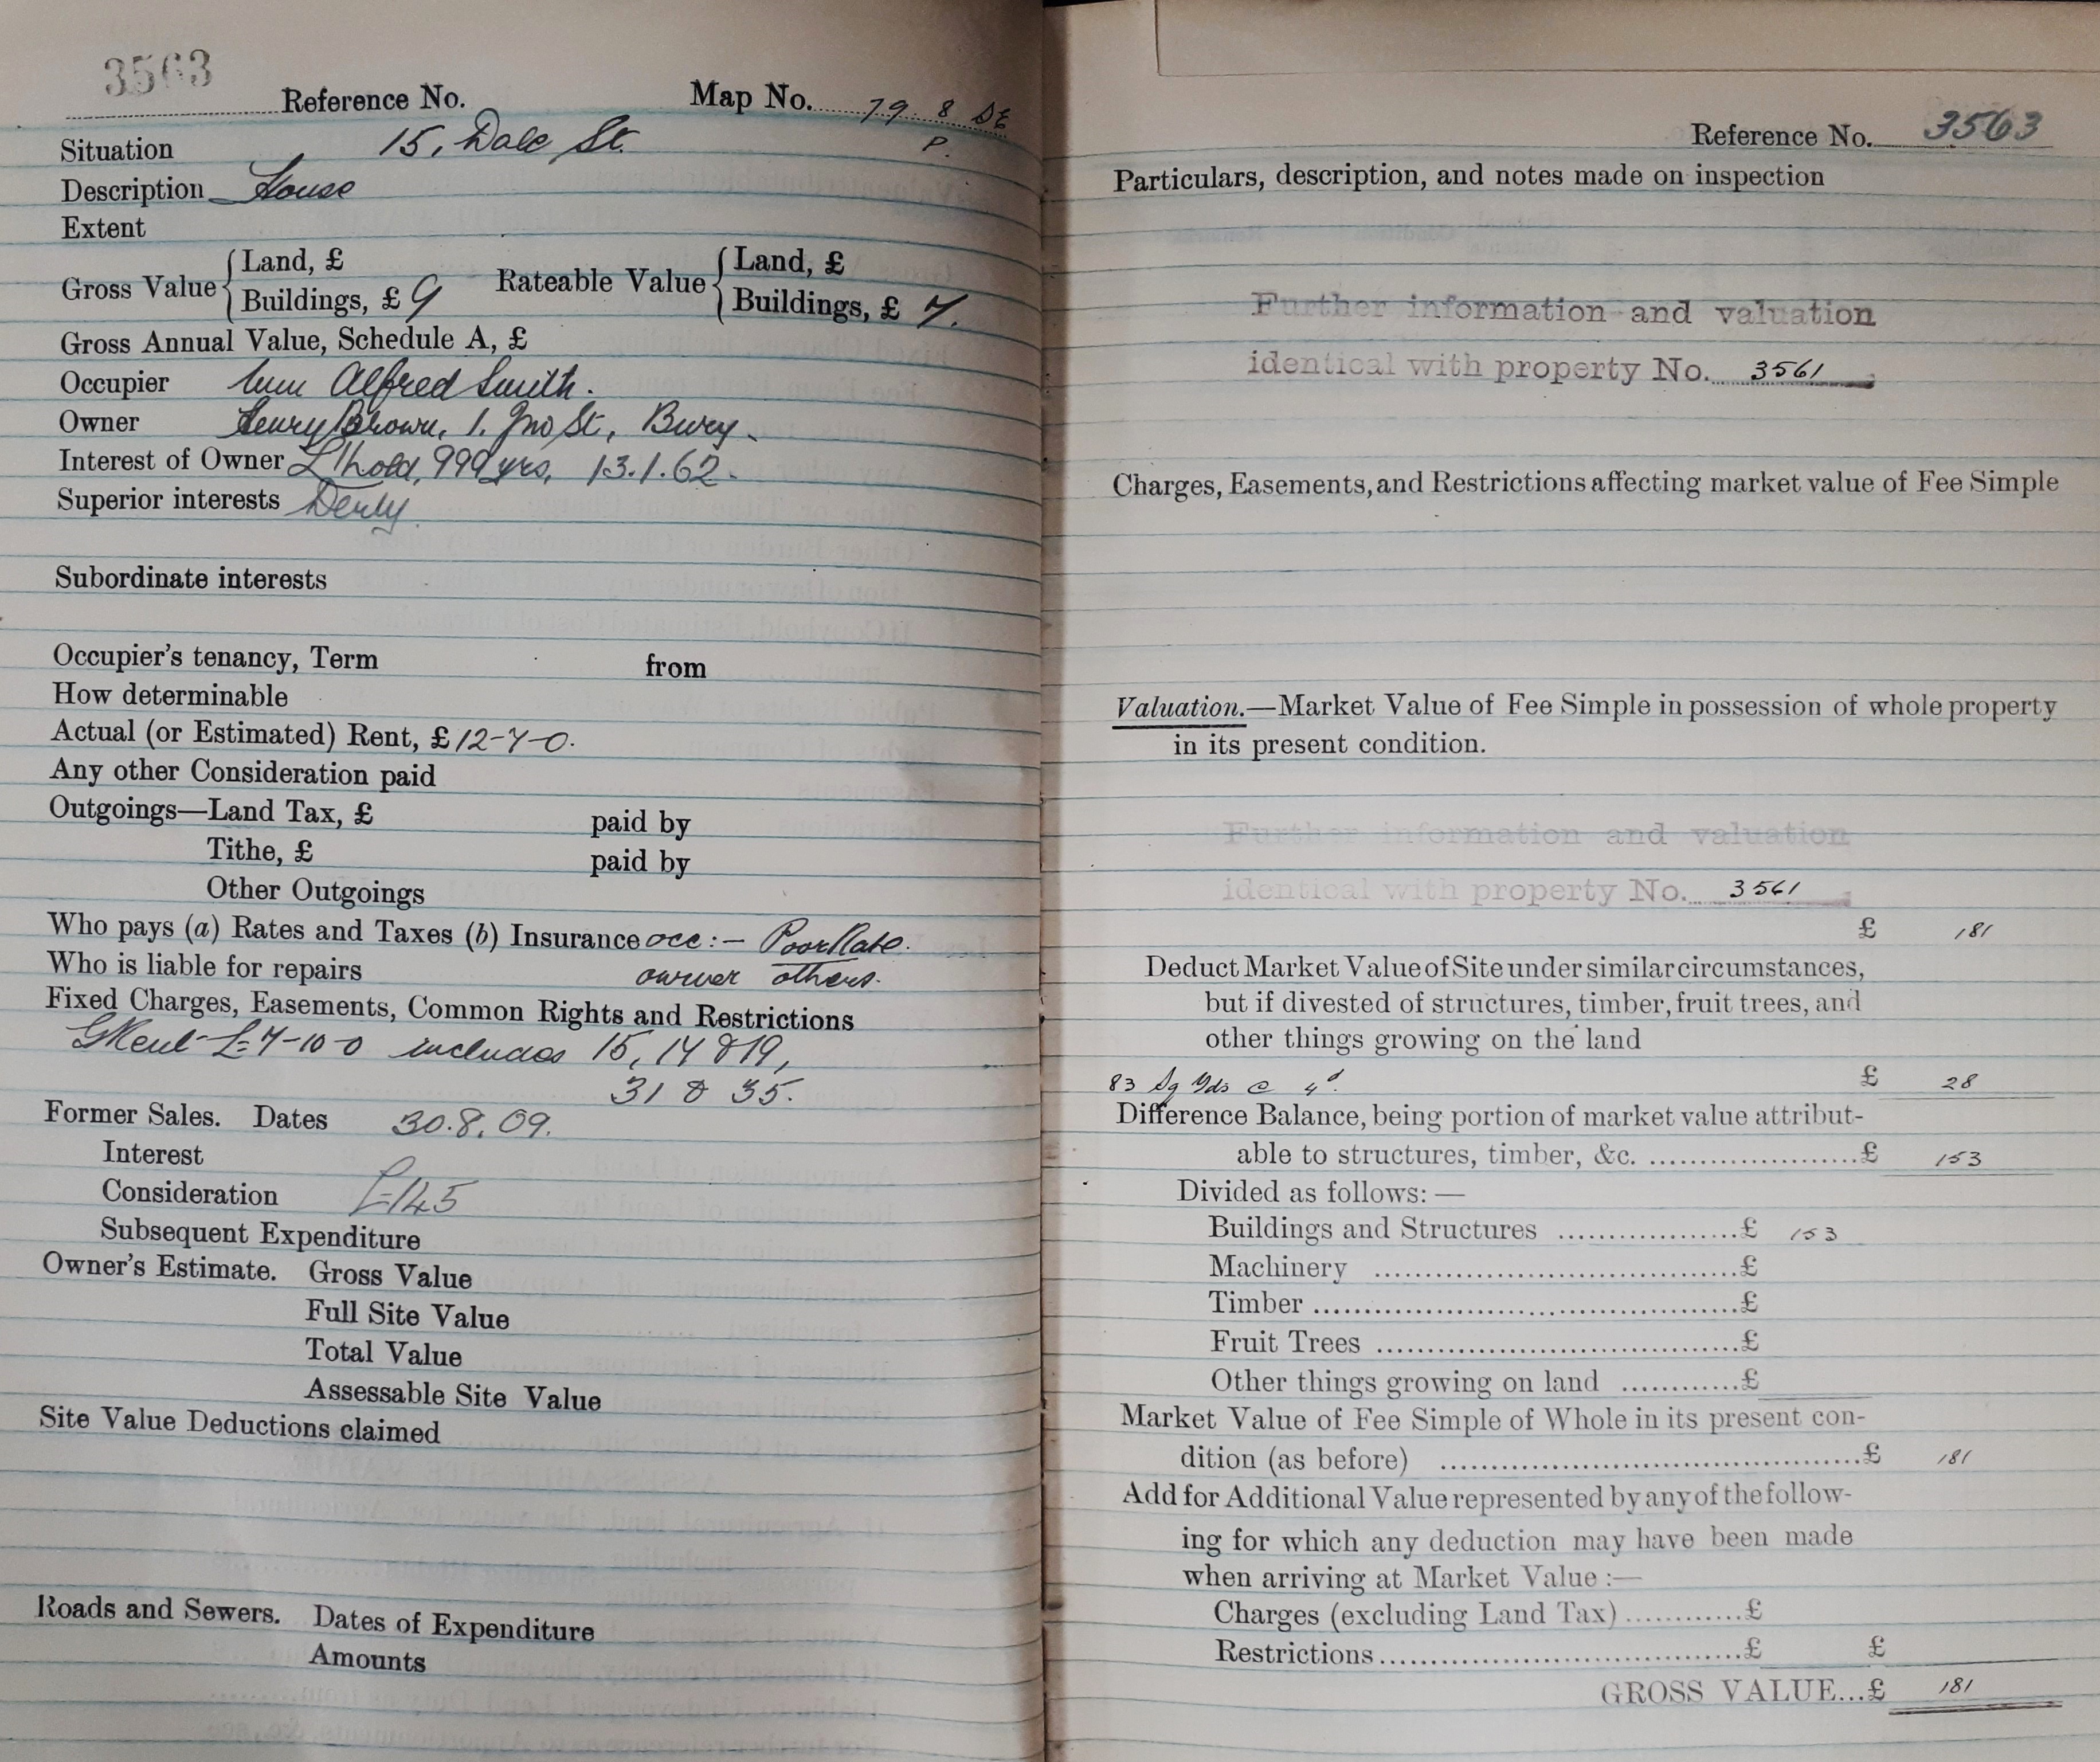 3563
Reference No. Map No. 79. 8 SE
P.
Situation 15, Dale St.
Description House
Extent
Gross Value { Land, £
Buildings, £ 9
Rateable Value { Land, £
Buildings, £ 7.
Gross Annual Value, Schedule A, £
Occupier Wm Alfred Smith.
Owner Henry Brown, 1. Jno St, Bury.
Interest of Owner L'hold, 999 yrs, 13.1.62.
Superior interests Derby
Subordinate interests
Occupier's tenancy, Term from
How determinable
Actual (or Estimated) Rent, £ 12-7-0.
Any other Consideration paid
Outgoings—Land Tax, £ paid by
Tithe, £ paid by
Other Outgoings
Who pays (a) Rates and Taxes (b) Insurance occ:- Poor Rate.
Who is liable for repairs owner others.
Fixed Charges, Easements, Common Rights and Restrictions
G Rent £7-10-0 includes 15, 17 & 19,
31 & 35.
Former Sales. Dates 30.8.09.
Interest
Consideration £145
Subsequent Expenditure
Owner's Estimate. Gross Value
Full Site Value
Total Value
Assessable Site Value
Site Value Deductions claimed
Roads and Sewers. Dates of Expenditure
Amounts
Reference No. 3563
Particulars, description, and notes made on inspection
Further information and valuation
identical with property No. 3561
Charges, Easements, and Restrictions affecting market value of Fee Simple
Valuation.—Market Value of Fee Simple in possession of whole property
in its present condition.
Further information and valuation
identical with property No. 3561
£ 181
Deduct Market Value of Site under similar circumstances,
but if divested of structures, timber, fruit trees, and
other things growing on the land
83 Sq Yds @ 4d. £ 28
Difference Balance, being portion of market value attribut-
able to structures, timber, &c. ....................£ 153
Divided as follows: —
Buildings and Structures ..................£ 153
Machinery .....................................£
Timber ...........................................£
Fruit Trees .....................................£
Other things growing on land ............£
Market Value of Fee Simple of Whole in its present con-
dition (as before) ...........................................£ 181
Add for Additional Value represented by any of the follow-
ing for which any deduction may have been made
when arriving at Market Value :—
Charges (excluding Land Tax) ............£
Restrictions.....................................£ £
GROSS VALUE...£ 181